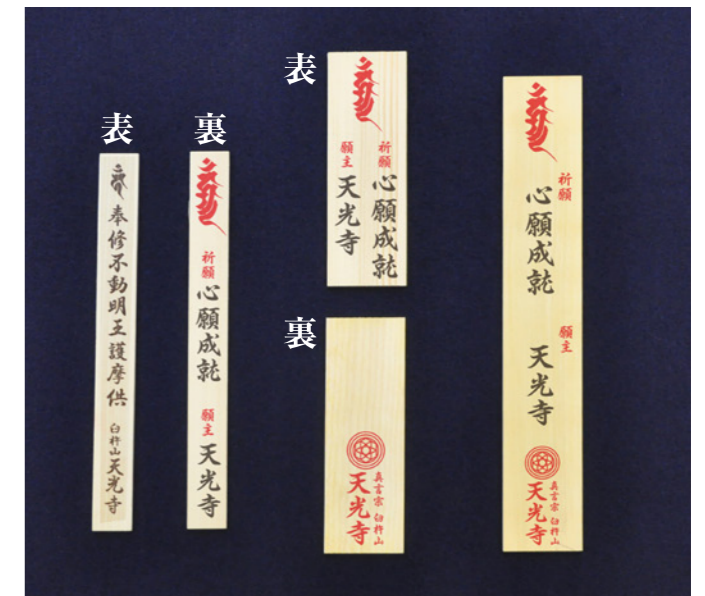 表
奉修不動明王護摩供
臼杵山 天光寺
裏
祈願
心願成就
願主
天光寺
表
祈願
心願成就
願主
天光寺
裏
真言宗 臼杵山
天光寺
祈願
心願成就
願主
天光寺
真言宗 臼杵山
天光寺